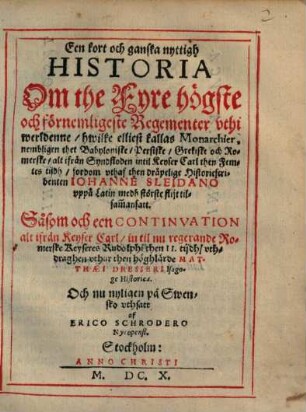 Een kort och ganska nyttigh
HISTORIA
Om the Fyre högste
och förnemligeste Regementer vthi
werldenne / hwilke elliest kallas Monarchier,
nembligen thet Babyloniske / Persiske / Grekiske och Ro-
merske / alt ifrån Syndfloden intil Keyser Carl then Fem-
tes tijdh / fordom vthaf then dråpelige Historiescri-
benten IOHANNE SLEIDANO
vppå Latin medh största flijt til-
samansatt.
Såsom och een CONTINVATION
alt ifrån Keyser Carl / in til nu regerande Ro-
merske Keyseres Rudolphi then II. tijdh / vth-
draghen vthur then höghlärde MAT-
THÆI DRESSERI Isago-
ge Historica.
Och nu nyligen på Swen-
sko vthsatt
af
ERICO SCHRODERO
Nycopensi.
Stockholm:
ANNO CHRISTI
M. DC. X.